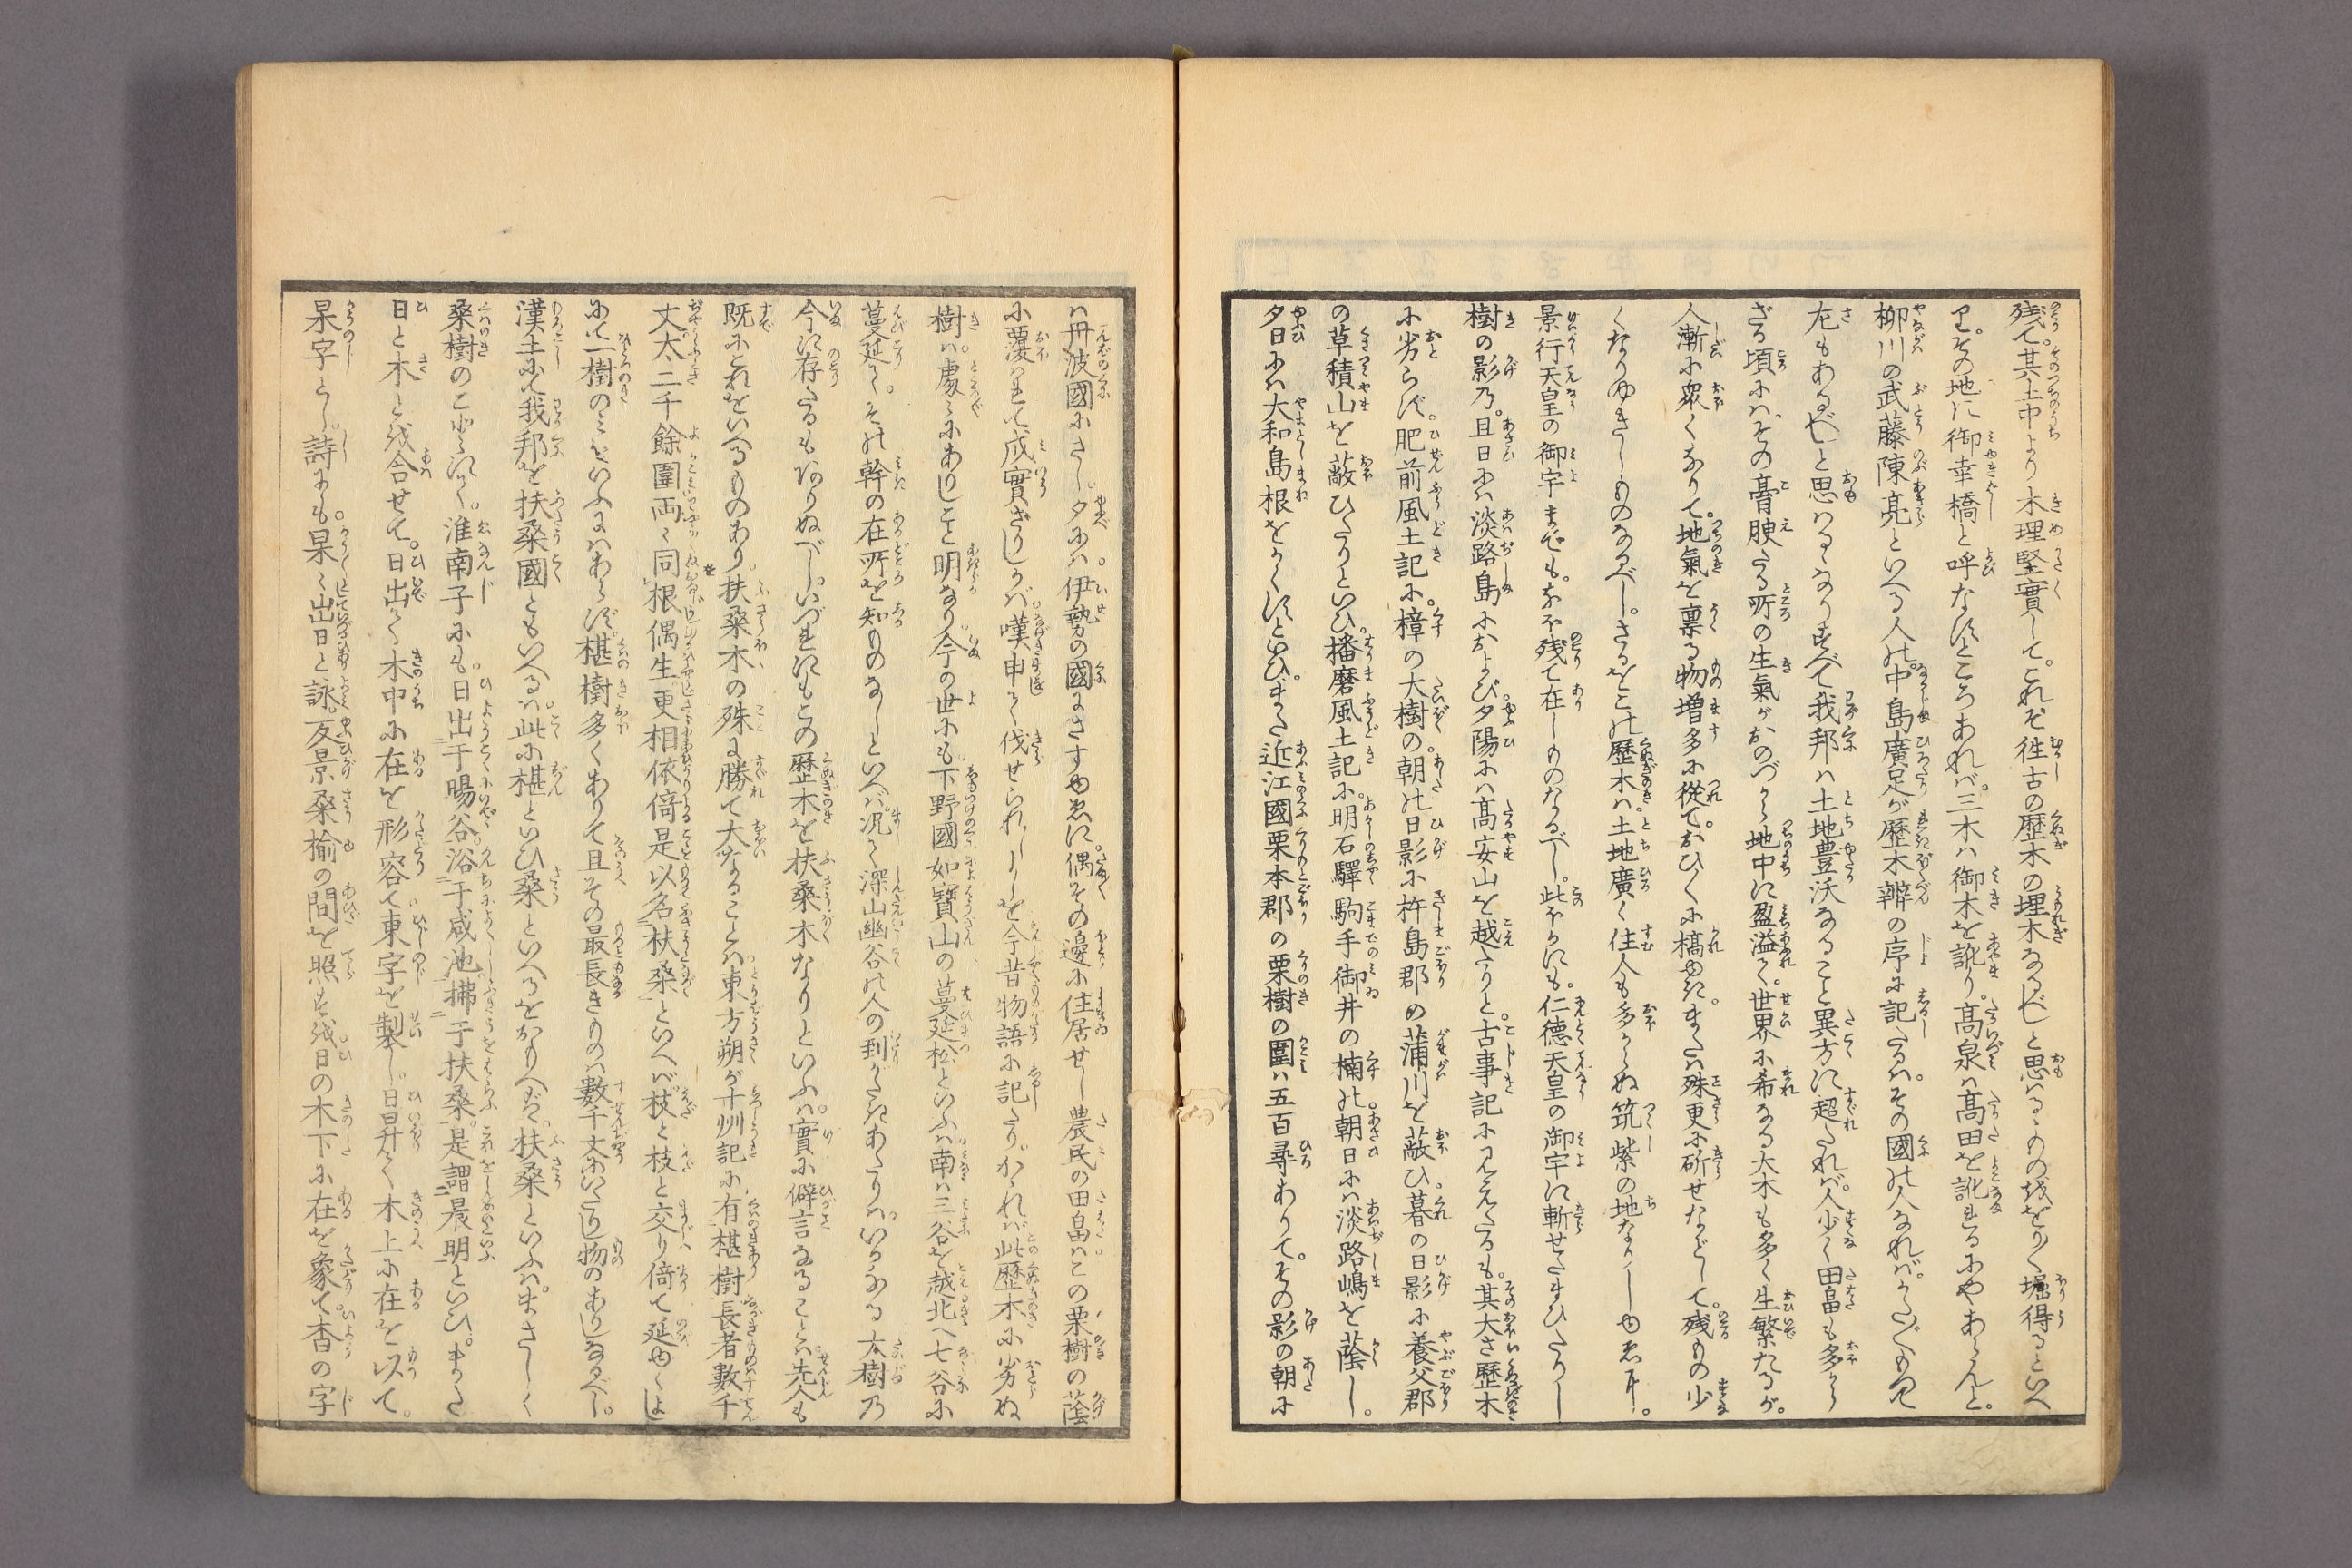 残て。其土中より木理堅實して。これぞ徃古の歴木の埋木なるべしと思はるゝもの越をり〳〵堀得るといへ
り。その地に御幸橋と呼なすところあれバ。三木ハ御木を訛り。髙泉ハ髙田を訛まるにやあらんと。
柳川の武藤陳亮といへる人の。中島廣足が歴木辨の序に記したるハ。その國の人なれバ。
左もあるべしと思はるゝなりすべて我邦ハ土地豊沃なること異方に超たれバ。人少く田畠も多から
ざる頃にハ。その膏腴たる所の生氣がおのづから地中に盈溢て。世界に希なる大木も多く生繁たるが。
人漸に衆くなりて。地氣を稟る物増多に從て。おひ〳〵に槁ゆき。または殊更に斫せなどして。残もの少
くなりゆきしものなるべし。さるをこの歴木ハ。土地廣く住人も多からぬ筑紫の地なりしゆゑ耳。
景行天皇の御宇までも。なほ残て在しものなるべし。此ほかにも。仁德天皇の御宇に斬せたまひたりし
樹の影乃。且日にハ淡路島におよび。夕陽にハ髙安山を越たりと。古事記に見えたるも。其大さ歴木
に劣らず。肥前風土記に。樟の大樹の。朝の日影に杵島郡の蒲川を蔽ひ。暮の日影に養父郡
の草積山を蔽ひたりといひ。播磨風土記に。明石驛駒手御井の楠の。朝日にハ淡路嶋を蔭し。
夕日にハ大和島根をかくすといひ。また近江國栗本郡の栗樹の圍ハ五百尋ありて。その影の朝に
ハ丹波國にさし。夕にハ。伊勢の國にさすゆゑに。偶その邊に住居せし農民の田畠ハこの栗樹の蔭
に覆はれて。成實ざりしかバ。嘆申て伐せられしよしを今昔物語に記したり。かゝれバ此歴木に劣ぬ
樹ハ。處々にありしこと明なり。今の世にも。下野國如寶山の蔓延松といふハ。南ハ三谷を越北ハ七谷に
蔓延て。その幹の在所を知ものなしといへバ。况て深山幽谷の人の到がたきあたりハ。いかなる大樹乃
今に存たるもありぬべし。いづれにもこの歴木を扶桑木なりといふハ。實に僻言なることハ。先人も
既にこれをいへるものあり。扶桑木の殊に勝て大なることハ。東方朔が十洲記に。有椹樹長者數千
丈大二千餘圍両々同根偶生更相依倚是以名扶桑といへバ。枝と枝と交り倚て延ゆくよ
にて一樹のミをいふにハあらず。椹樹多くありて且その最長きものハ。數千丈にいたりし物のありしなるべし。
漢土にて我邦を扶桑國ともいへるハ。此に椹といひ桑といへるをおもへば。扶桑といふハ。まさしく
桑樹のことにて。淮南子にも。日出于暘谷。浴于咸池。拂于扶桑。是謂晨明といひ。また
日と木と越合せて。日出て木中に在を形容て東字を製し。日昇て木上に在を以て。
杲字とし。詩にも。杲々出日と詠。反景桑榆の間を照す越。日の木下に在を象て。杳の字